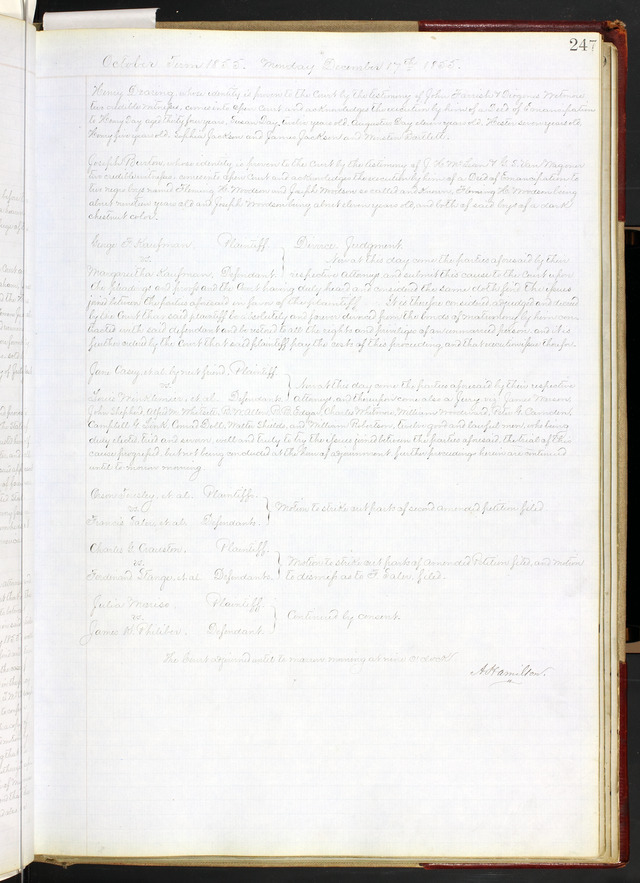 247
October Term 1855. Monday December 17th 1855.
Henry Dearing, whose identity is proven to the Court by the testimony of John
two credible witnesses, comes into open Court and acknowledges the execution by him of a Deed of Emancipation
to Henry Gay aged thirty four years, Susan Gay, twelve years old, Augustus Gay eleven years old, Hester seven years old
Henry four years old, Sophia Jackson and James Jackson and
Joseph Burton, whose identity is proven to the Court by the testimony of J. H. McLean & G. D. Van Wagoner
two credible witnesses comes into open Court and acknowledges the execution by him of a Deed of Emancipation to
two negro boys named Fleming H. Woodson and Joseph Woodson so called and known, Fleming H. Woodson being
about nineteen years old and Joseph Woodson being about eleven years old, and both of said boys of a dark
chestnut color.
George F. Kaufman, Plaintiff. Divorce Judgment
vs. Now at this day come the parties aforesaid by their
Margaretha Kaufman, Defendant. respective attorneys and submit this cause to the Court upon
the pleadings and proofs and the Court having duly heard and considered the same doth find the issues
joined between the parties aforesaid in favor of the plaintiff. It is therefore considered adjudged and decreed
by the Court that said plaintiff be absolutely and forever divorced from the bonds of matrimony by him
with said defendant and be restored to all the rights and privileges of an unmarried person. and it is
further ordered by the Court that said plaintiff pay the costs of this proceeding, and that execution issue therefor.
Jane Casey, et al. by next friend, Plaintiff
vs. Now at this day come the parties aforesaid by their respective
Lewis et al. Defendants. Attorneys, and thereupon come also a jury viz: James
John Shepherd, Alfred M. R. Walter, B. B. Edgar, Charles Williams Peter G. Camden,
Campbell G. Conrad Doll, Walter Shields, and William Robertson, twelve good and lawful men, who being
duly elected tried and sworn, well and truly to try the issues joined between the parties aforesaid, the trial of this
cause progressed, but not being concluded at the hour of adjournment further proceedings herein are continued
until to-morrow morning.
et al. Plaintiffs.
vs. Motion to strike out part of second amended petition filed.
Francis et al. Defendants.
Charles C. Plaintiff.
vs. Motion to strike out parts of Amended Petition filed, and motion
Ferdinand et al. Defendants. to dismiss as to F. filed.
Julia Plaintiff.
vs. Continued by consent.
James H. Defendant.
The Court adjourned until to-morrow morning at nine o'clock.
A Hamilton.